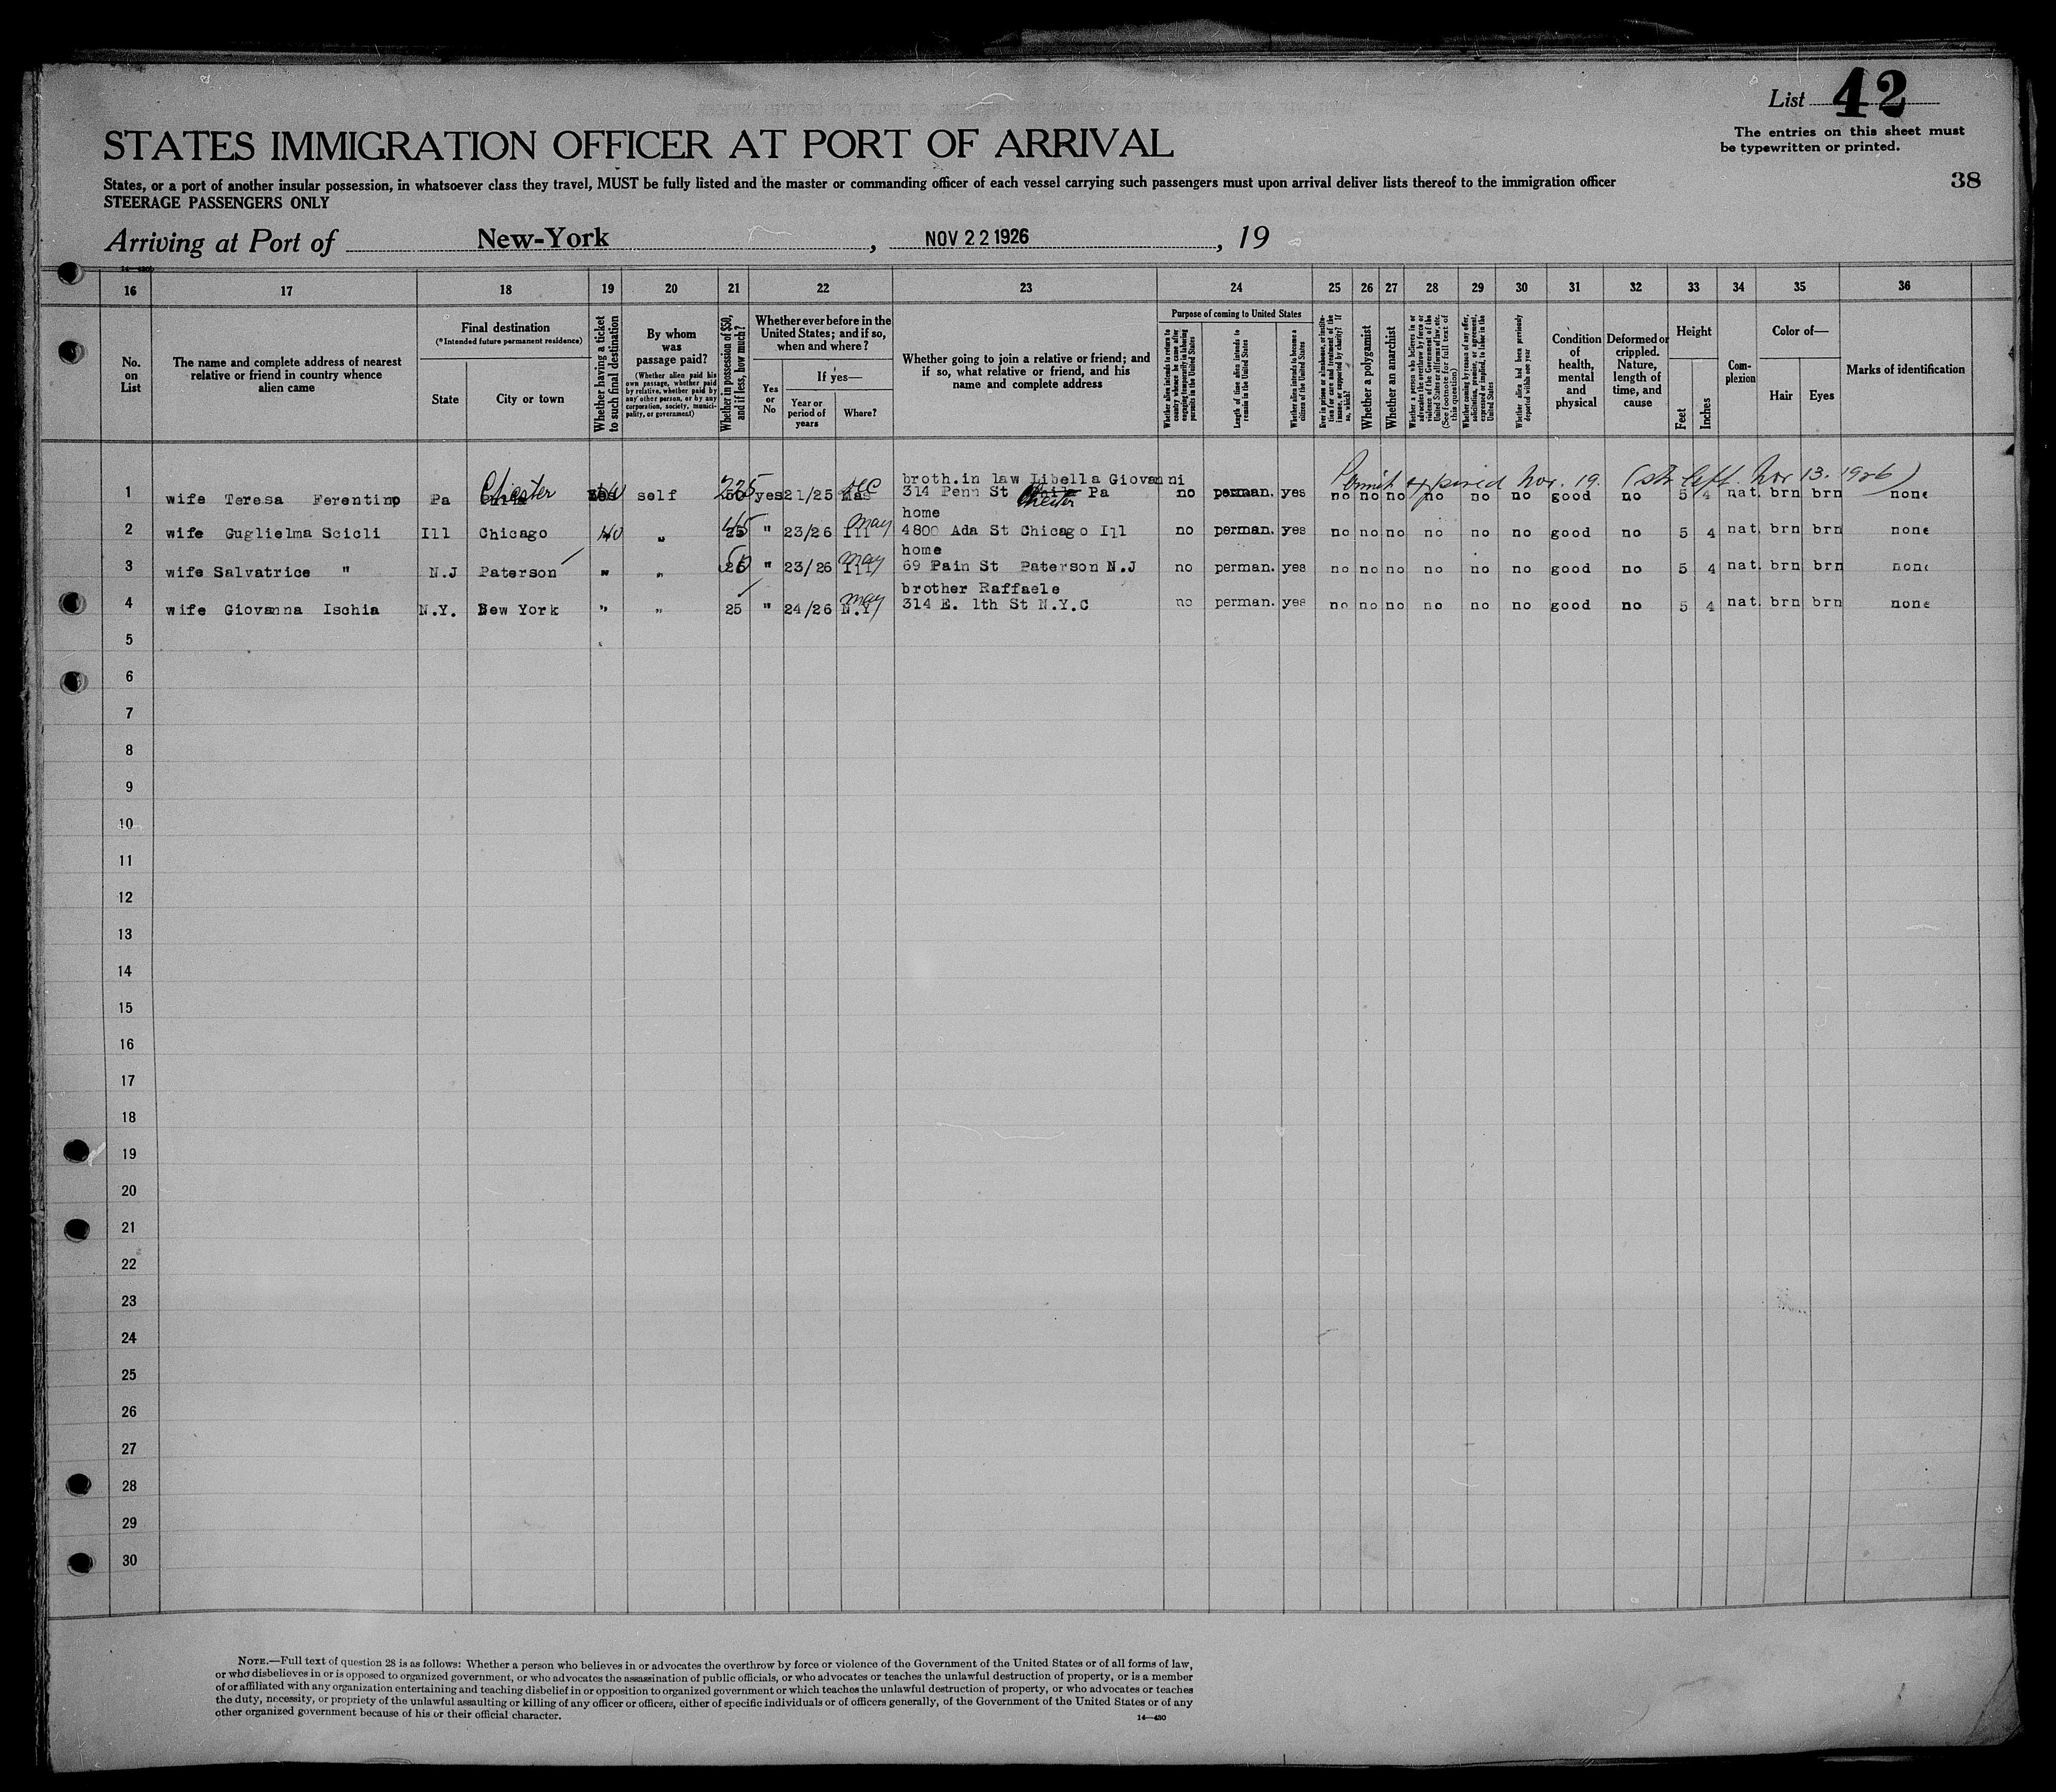 List 42
The entries on this sheet must
be typewritten or printed.
STATES IMMIGRATION OFFICER AT PORT OF ARRIVAL
States, or a port of another insular possession, in whatsoever class they travel, MUST be fully listed and the master or commanding officer of each vessel carrying such passengers must upon arrival deliver lists thereof to the immigration officer
38
STEERAGE PASSENGERS ONLY
Arriving at Port of New-York, NOV 22 1926, 19
16 17 18 19 20 21 22 23 24 25 26 27 28 29 30 31 32 33 34 35 36
No. on List
The name and complete address of nearest relative or friend in country whence alien came
Final destination
(*Intended future permanent residence)
State
City or town
Whether having a ticket to such final destination
By whom was passage paid?
(Whether alien paid his own passage, whether paid by relative, whether paid by any other person, or by any corporation, society, municipality, or government)
Whether in possession of $50, and if less, how much?
Whether ever before in the United States; and if so, when and where?
Yes or No
If yes—
Year or period of years
Where?
Whether going to join a relative or friend; and if so, what relative or friend, and his name and complete address
Purpose of coming to United States
Length of time alien intends to remain in the United States
Whether alien intends to become a citizen of the United States
Whether a polygamist
Whether an anarchist
Whether alien had been previously deported within one year
Condition of health, mental and physical
Deformed or crippled. Nature, length of time, and cause
Height
Feet
Inches
Complexion
Color of—
Hair
Eyes
Marks of identification
Permit expired Nov. 19. (str left Nov 13. 1926)
broth.in law Libella Giovanni
1 wife Teresa Ferentino Pa Chester self 225 yes 21/25 Dec 314 Penn St Chester Pa no perman. yes no no no no no no good no 5 4 nat. brn brn none
home
2 wife Guglielma Scicli Ill Chicago no " 45 " 23/26 May Ill 4800 Ada St Chicago Ill no perman. yes no no no no no no good no 5 4 nat. brn brn none
home
3 wife Salvatrice " N.J Paterson " " " 23/26 May 69 Pain St Paterson N.J no perman. yes no no no no no no good no 5 4 nat. brn brn none
brother Raffaele
4 wife Giovanna Ischia N.Y. New York " " 25 " 24/26 May N.Y 314 E. 1th St N.Y.C no perman. yes no no no no no no good no 5 4 nat. brn brn none
5
6
7
8
9
10
11
12
13
14
15
16
17
18
19
20
21
22
23
24
25
26
27
28
29
30
NOTE.—Full text of question 28 is as follows: Whether a person who believes in or advocates the overthrow by force or violence of the Government of the United States or of all forms of law,
or who disbelieves in or is opposed to organized government, or who advocates the assassination of public officials, or who advocates or teaches the unlawful destruction of property, or is a member
of or affiliated with any organization entertaining and teaching disbelief in or opposition to organized government or which teaches the unlawful destruction of property, or who advocates or teaches
the duty, necessity, or propriety of the unlawful assaulting or killing of any officer or officers, either of specific individuals or of officers generally, of the Government of the United States or of any
other organized government because of his or their official character.
14—430